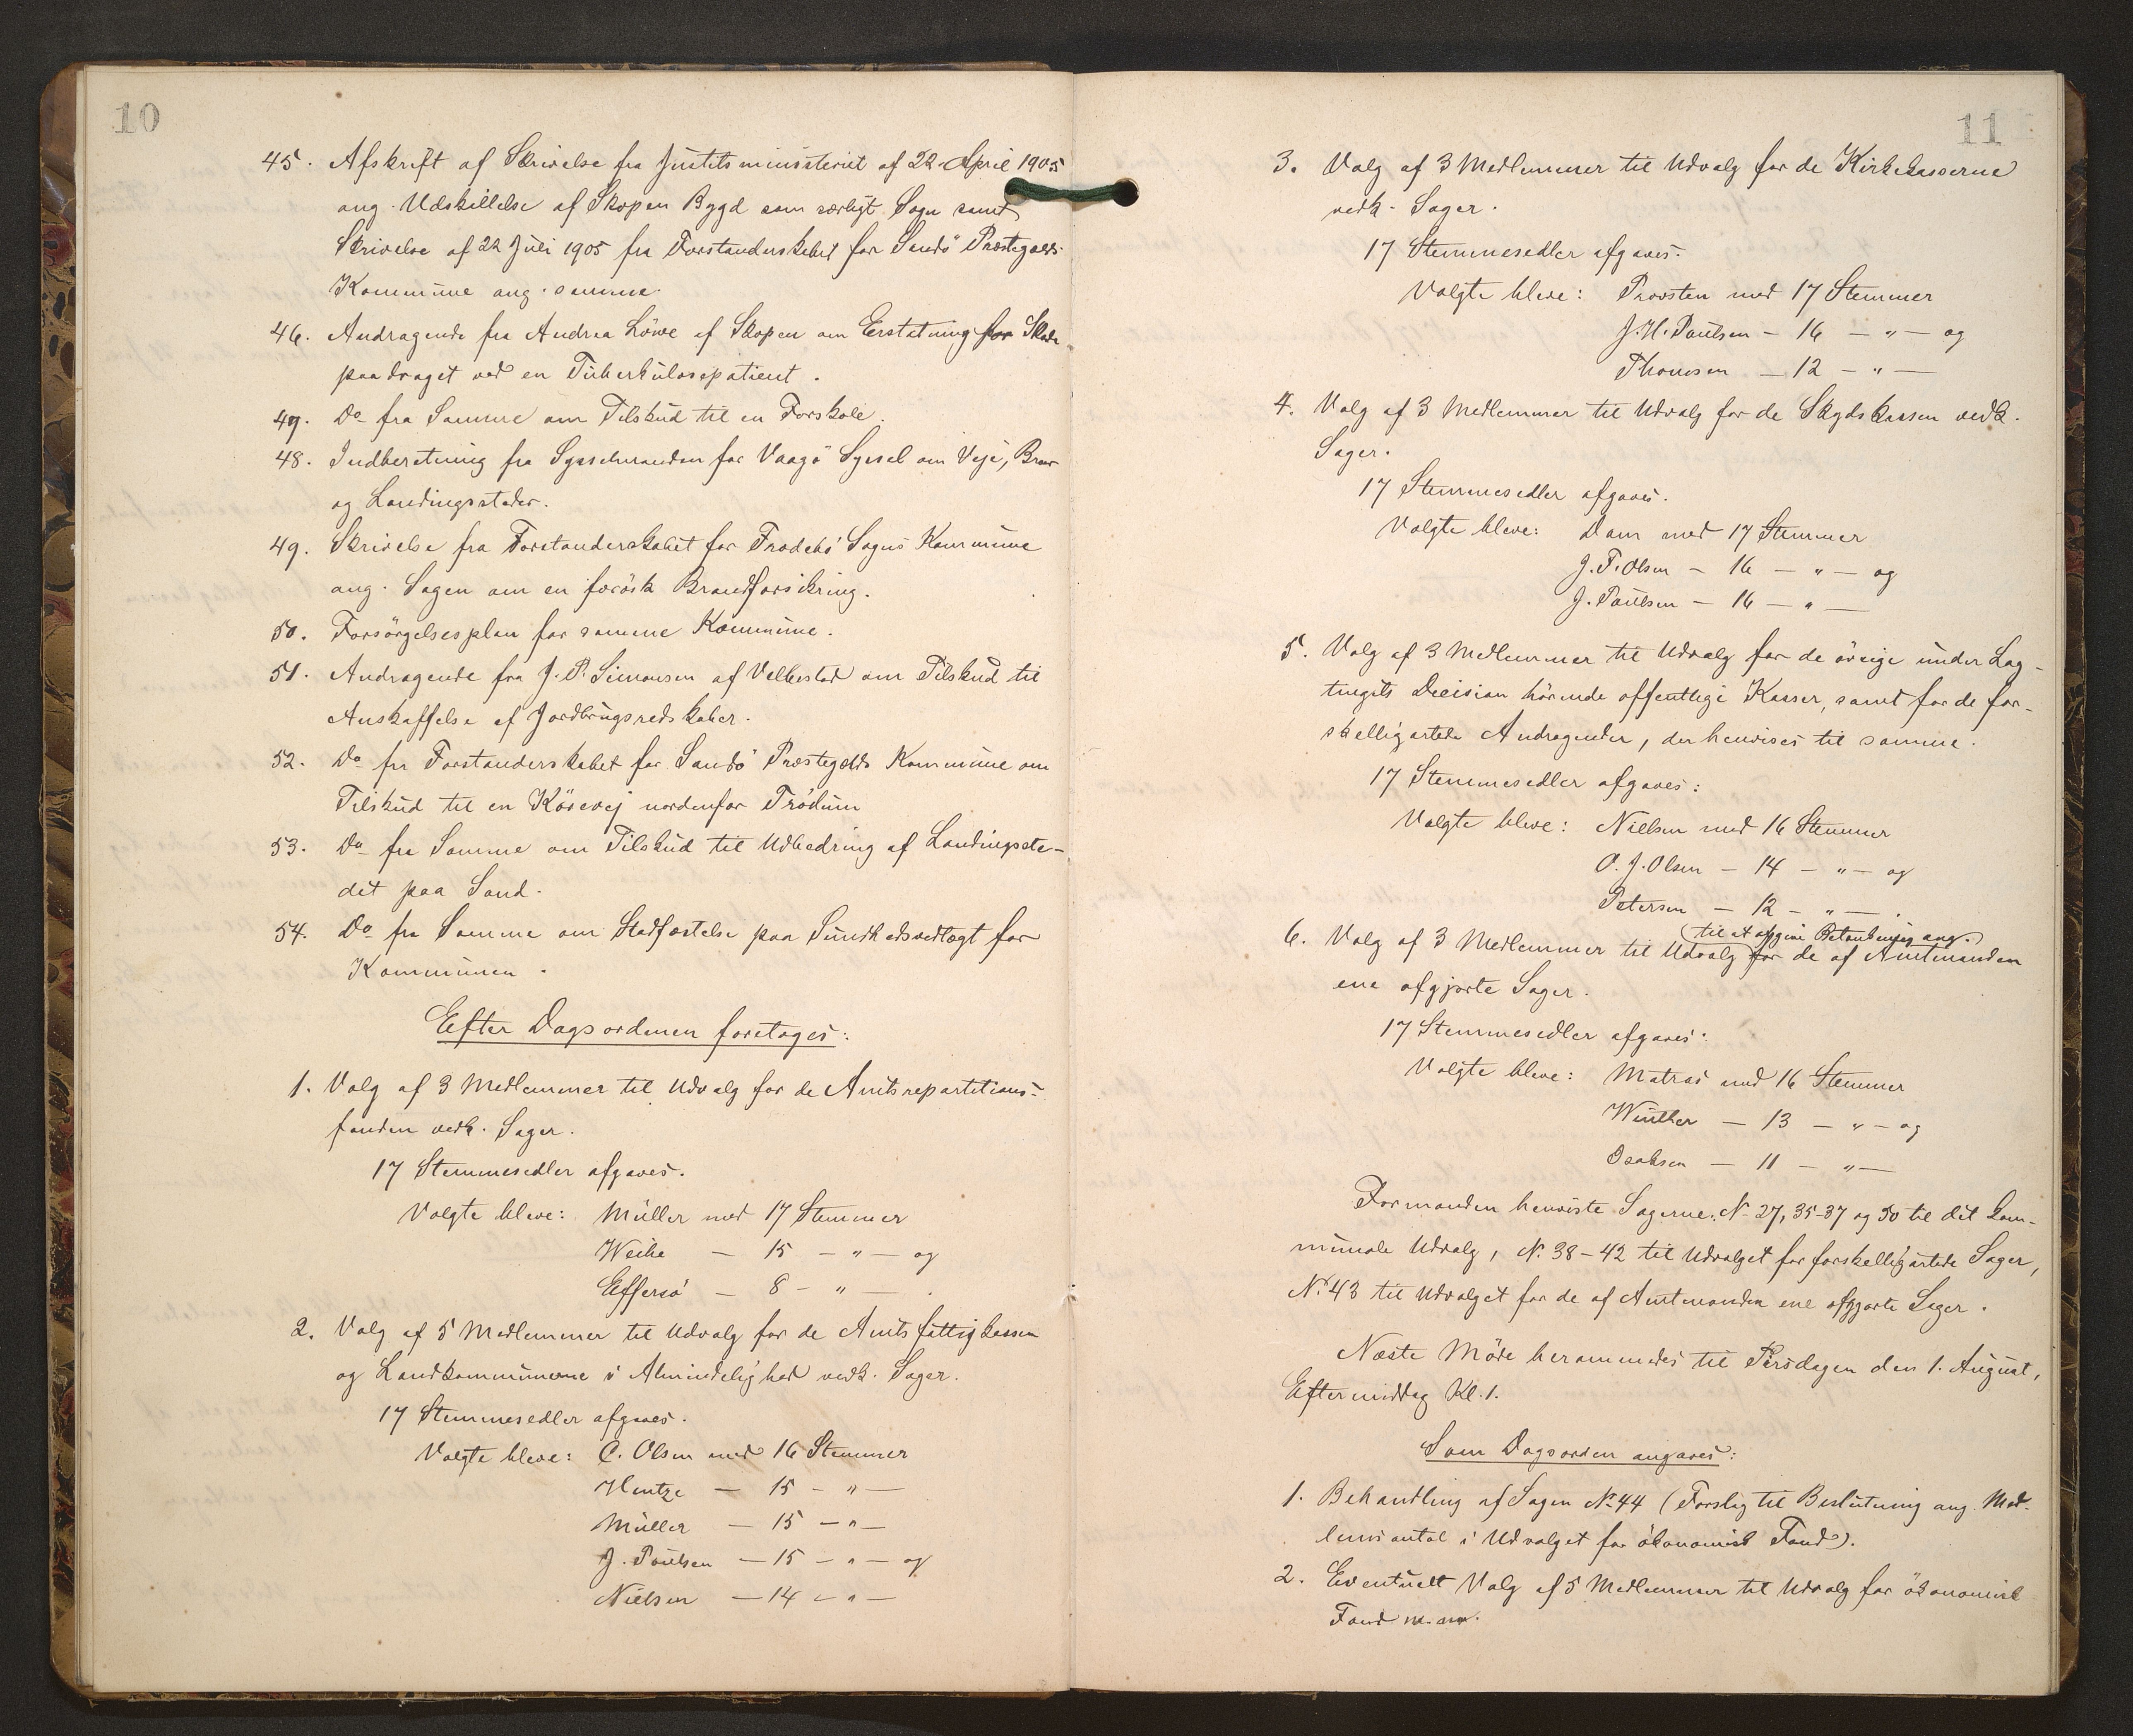 10
45. Afskrift af Skrivelse fra Justitsministeriet af 22 April 1905
ang. Udskillelse af Skopen Bygd som særligt Sogn samt
Skrivelse af 22 Juli 1905 fra Forstanderskabet for Sandö Præstegælds
Kommune ang. samme.
46. Andragende fra Andrea Löwe af Skopen om Erstatning for Skade
paadraget ved en Tuberkulosepatient.
47. Do fra Samme om Tilskud til en Forskole.
48. Indberetning fra Sysselmanden for Vaagö Syssel om Veje, Broer
og Landingssteder.
49. Skrivelse fra Forstanderskabet for Frodebö Sogns Kommune
ang. Sagen om en færösk Brandforsikring.
50. Forsörgelsesplan for samme Kommune.
51. Andragende fra J. P. Simonsen af Velbestad om Tilskud til
Anskaffelse af Jordbrugsredskaber.
52. Do fra Forstanderskabet for Sandö Præstegælds Kommune om
Tilskud til en Körevej nordenfor Tródum
53. Do fra Samme om Tilskud til Udbedring af Landingsste-
det paa Sand.
54. Do fra Samme om Stadfæstelse paa Sundhedsvedtægt for
Kommunen.
Efter Dagsordenen foretoges:
1. Valg af 3 Medlemmer til Udvalg for de Amtsrepartitions-
fonden vedk. Sager.
17 Stemmesedler afgaves.
Valgte bleve: Müller med 17 Stemmer
Weihe — 15 — " — og
Effersö — 8 — " — .
2. Valg af 5 Medlemmer til Udvalg for de Amtsfattigkassen
og Landkommunerne i Almindelighed vedk. Sager.
17 Stemmesedler afgaves.
Valgte bleve: C. Olsen med 16 Stemmer
Hentze — 15 — " —
Müller — 15 — " —
J. Poulsen — 15 — " — og
Nielsen — 14 — " —
11
3. Valg af 3 Medlemmer til Udvalg for de Kirkekasserne
vedk. Sager.
17 Stemmesedler afgaves.
Valgte bleve: Provsten med 17 Stemmer
J. H. Poulsen — 16 — " — og
Thomsen — 12 — " —
4. Valg af 3 Medlemmer til Udvalg for de Skydskassen vedk.
Sager.
17 Stemmesedler afgaves.
Valgte bleve: Dam med 17 Stemmer
J. P. Olsen — 16 — " — og
J. Poulsen — 16 — " —
5. Valg af 3 Medlemmer til Udvalg for de övrige under Lag-
tingets Decision hörende offentlige Kasser, samt for de for-
skelligartede Andragender, der henvises til samme.
17 Stemmesedler afgaves:
Valgte bleve: Nielsen med 16 Stemmer
O. J. Olsen — 14 — " — og
Petersen — 12 — " — .
(til at afgive Betænkning ang.)
6. Valg af 3 Medlemmer til Udvalg for de af Amtmanden
ene afgjorte Sager.
17 Stemmesedler afgaves.
Valgte bleve: Matras med 16 Stemmer
Winther — 13 — " — og
Isaksen — 11 — " —
Formanden henviste Sagerne: No 27, 35-37 og 50 til det kom-
munale Udvalg, No 38-42 til Udvalget for forskelligartede Sager,
No 43 til Udvalget for de af Amtmanden ene afgjorte Sager.
Næste Möde berammedes til Tirsdagen den 1. August,
Eftermiddag Kl. 1.
Som Dagsorden angaves:
1. Behandling af Sagen No 44 (Forslag til Beslutning ang. Med-
lemsantal i Udvalget for ökonomisk Fond).
2. Eventuelt Valg af 5 Medlemmer til Udvalg for ökonomisk
Fond m. m.